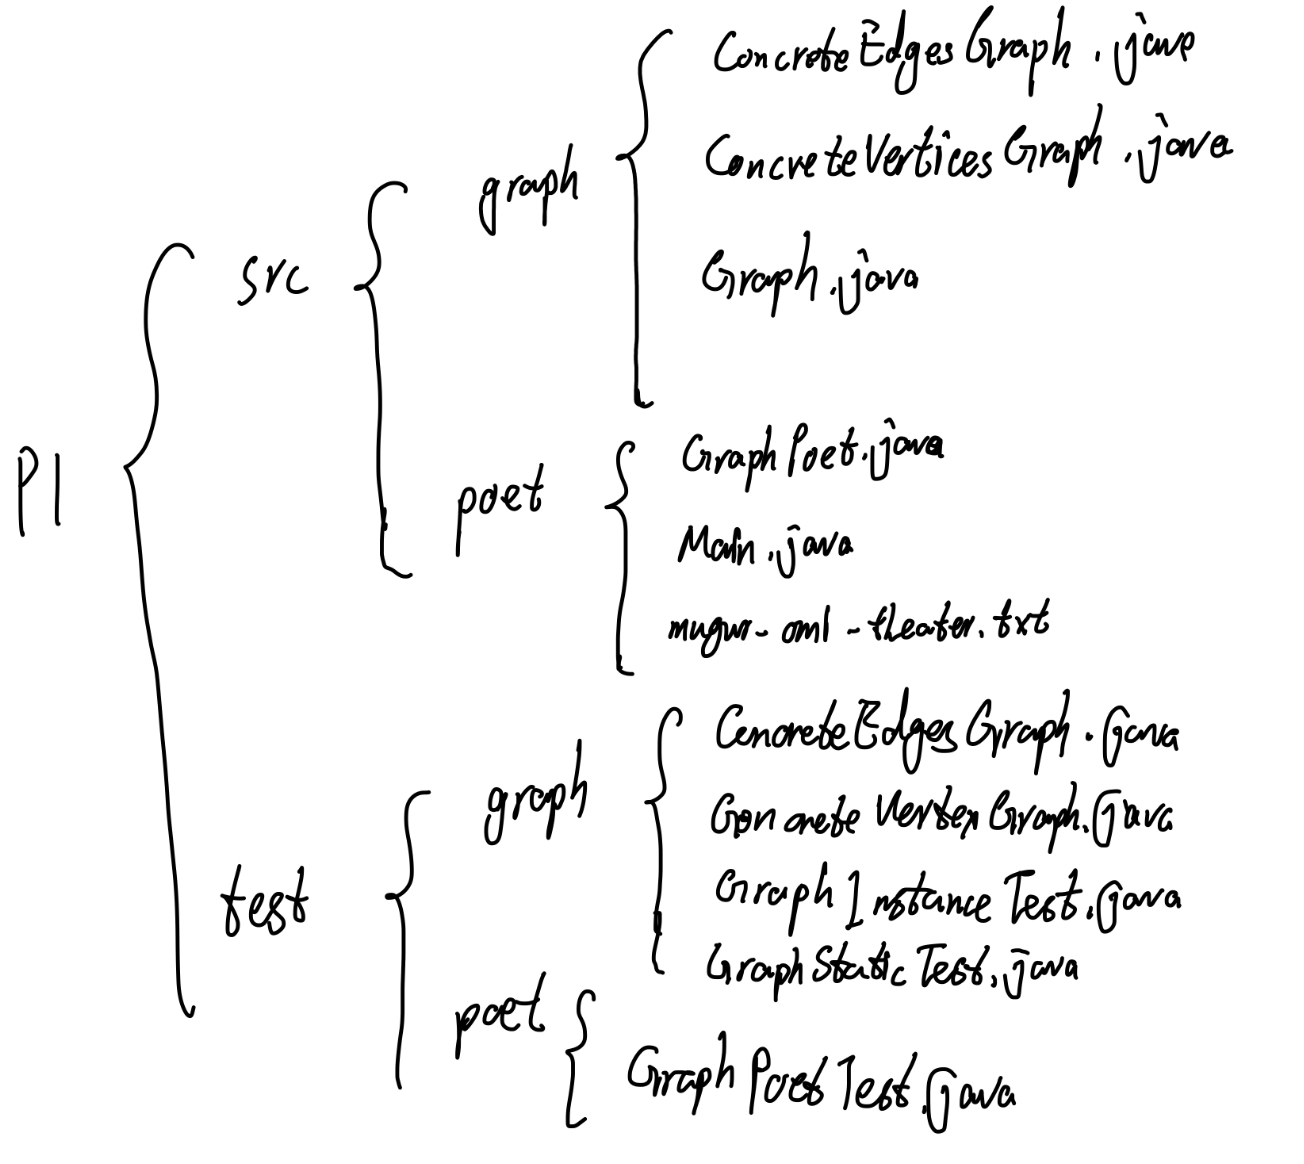 P1
src
graph
ConcreteEdgesGraph.java
ConcreteVerticesGraph.java
Graph.java
poet
GraphPoet.java
Main.java
mugar-oml-theater.txt
test
graph
ConcreteEdgesGraph.java
ConcreteVertexGraph.java
GraphInstanceTest.java
GraphStaticTest.java
poet
GraphPoetTest.java